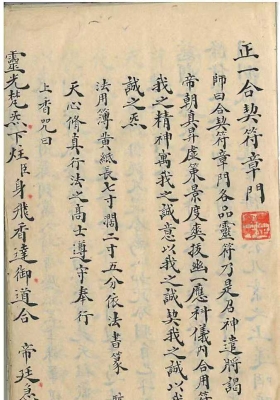 正一合契符章門
師曰合契符章門各品靈符乃是乃神遣將謁
帝朝真昇虛策景度爽拔幽一應科儀內合用符
我之精神寓我之誠意以我之誠契我之誠以我
誠之炁
法用簿黃紙長七寸闊二寸五分依法書篆
天心脩真行法之高士遵守奉行
上香咒曰
靈光梵炁下炷臣身飛香達御道合 帝廷